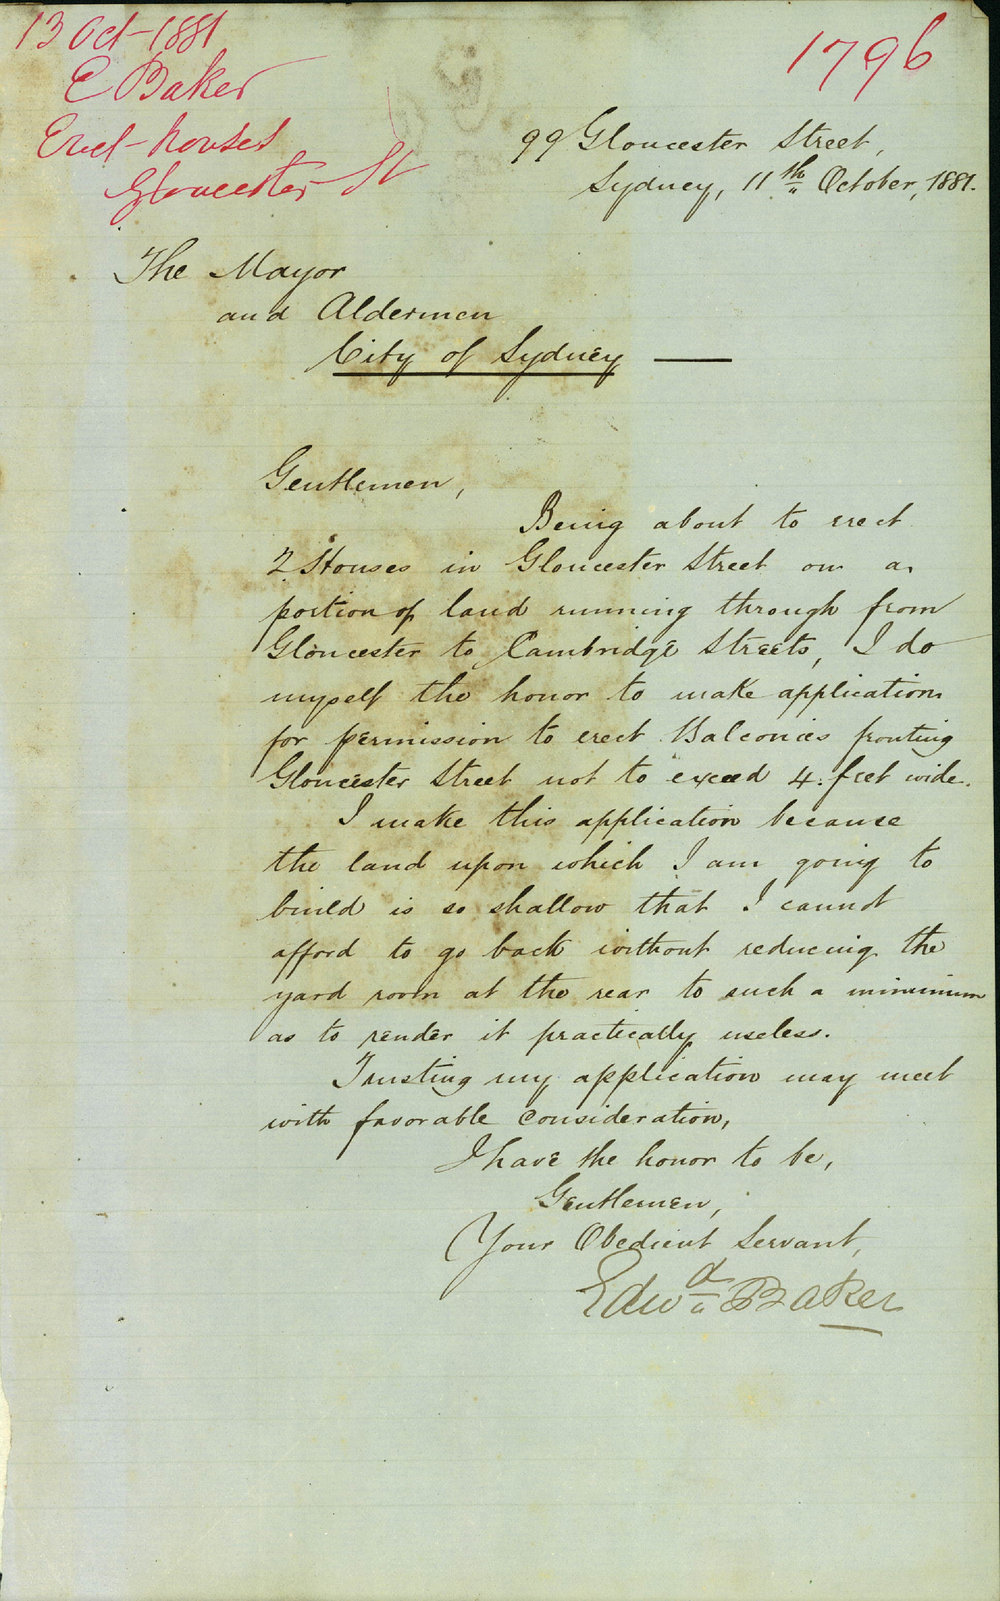 13 Oct - 1881
E Baker
Erect - houses
Gloucester St
1796
99 Gloucester Street,
Sydney, 11th October, 1881.
The Mayor
and Aldermen
City of Sydney —
Gentlemen,
Being about to erect
2 Houses in Gloucester Street on a
portion of land running through from
Gloucester to Cambridge Streets, I do
myself the honor to make application
for permission to erect Balconies fronting
Gloucester Street not to exceed 4. feet wide.
I make this application because
the land upon which I am going to
build is so shallow that I cannot
afford to go back without reducing the
yard room at the rear to such a minimum
as to render it practically useless.
Trusting my application may meet
with favorable consideration,
I have the honor to be,
Gentlemen,
Your Obedient Servant,
Edwd Baker